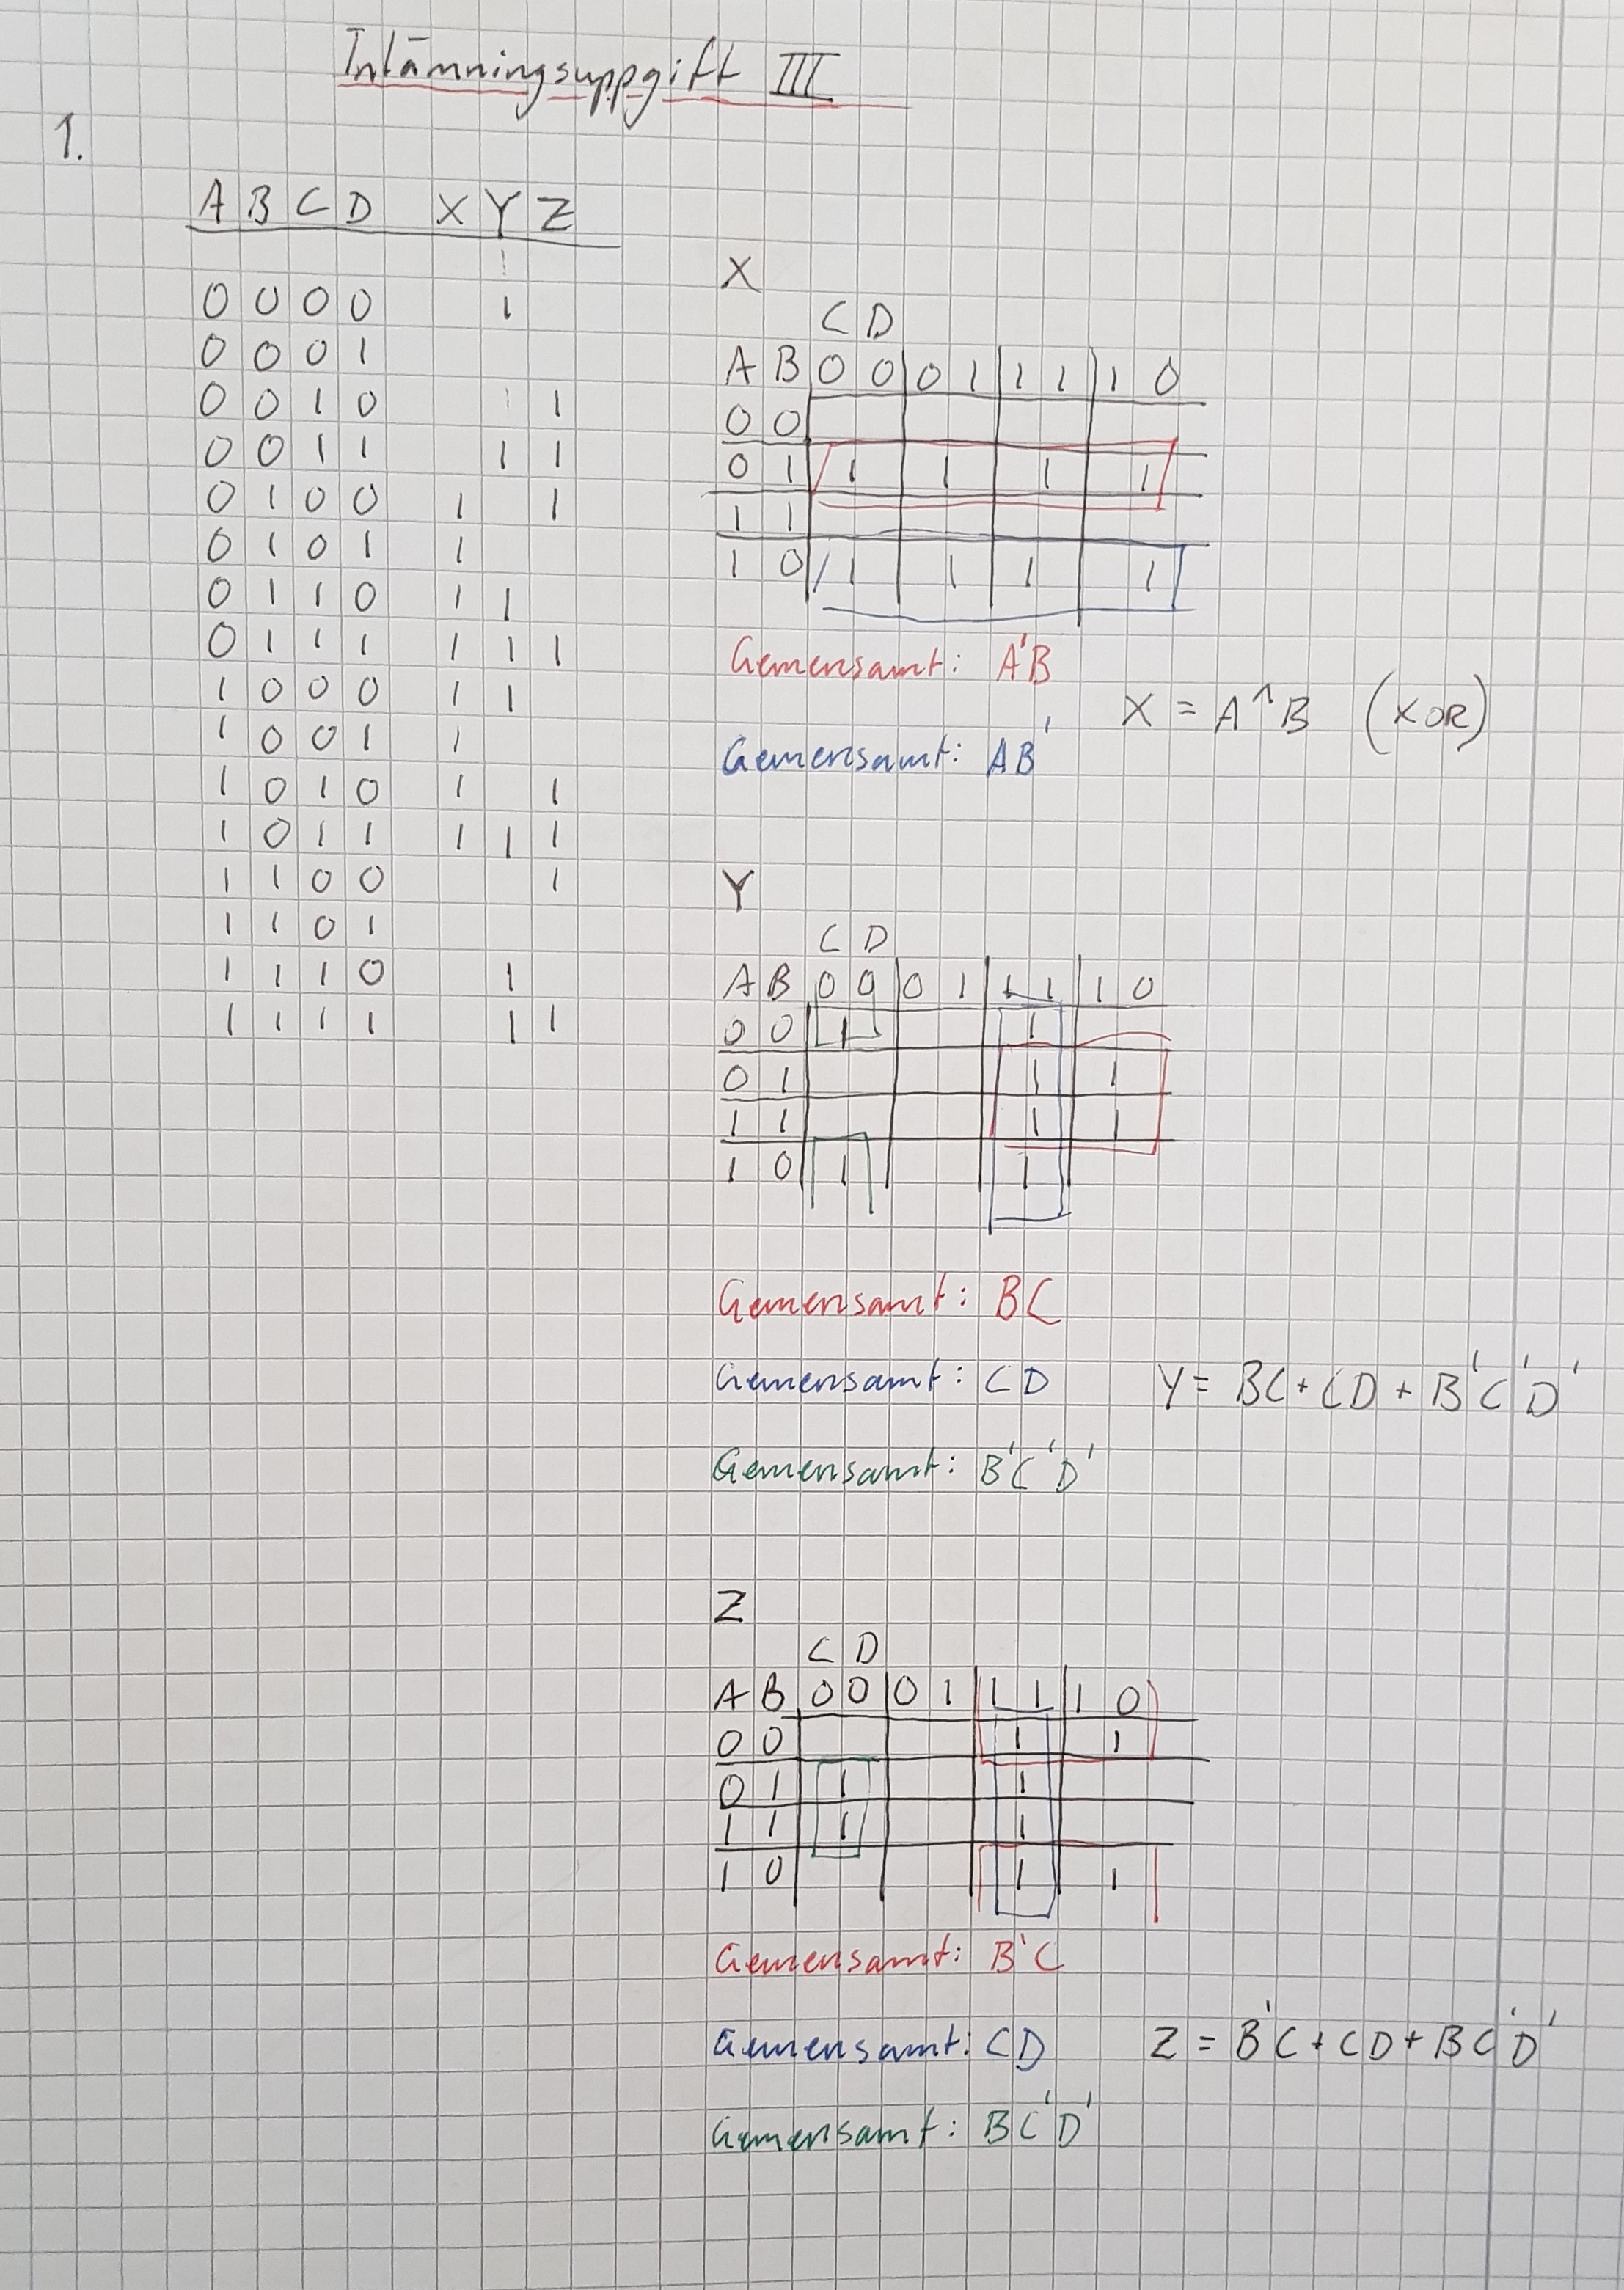 Inlämningsuppgift III
1.
A B C D X Y Z
0 0 0 0 1
0 0 0 1
0 0 1 0 1
0 0 1 1 1 1
0 1 0 0 1 1
0 1 0 1 1
0 1 1 0 1 1
0 1 1 1 1 1 1
1 0 0 0 1 1
1 0 0 1 1
1 0 1 0 1 1
1 0 1 1 1 1 1
1 1 0 0 1
1 1 0 1
1 1 1 0 1
1 1 1 1 1 1
X
C D
A B 0 0 0 1 1 1 1 0
0 0
0 1 1 1 1 1
1 1
1 0 1 1 1 1
Gemensamt: A'B
Gemensamt: AB'
X = A^B (XOR)
Y
C D
A B 0 0 0 1 1 1 1 0
0 0 1 1
0 1 1 1
1 1 1 1
1 0 1 1
Gemensamt: BC
Gemensamt: CD
Y = BC + CD + B'C'D'
Gemensamt: B'C'D'
Z
C D
A B 0 0 0 1 1 1 1 0
0 0 1 1
0 1 1 1
1 1 1 1
1 0 1 1
Gemensamt: B'C
Gemensamt: CD
Z = B'C + CD + BC'D'
Gemensamt: BC'D'